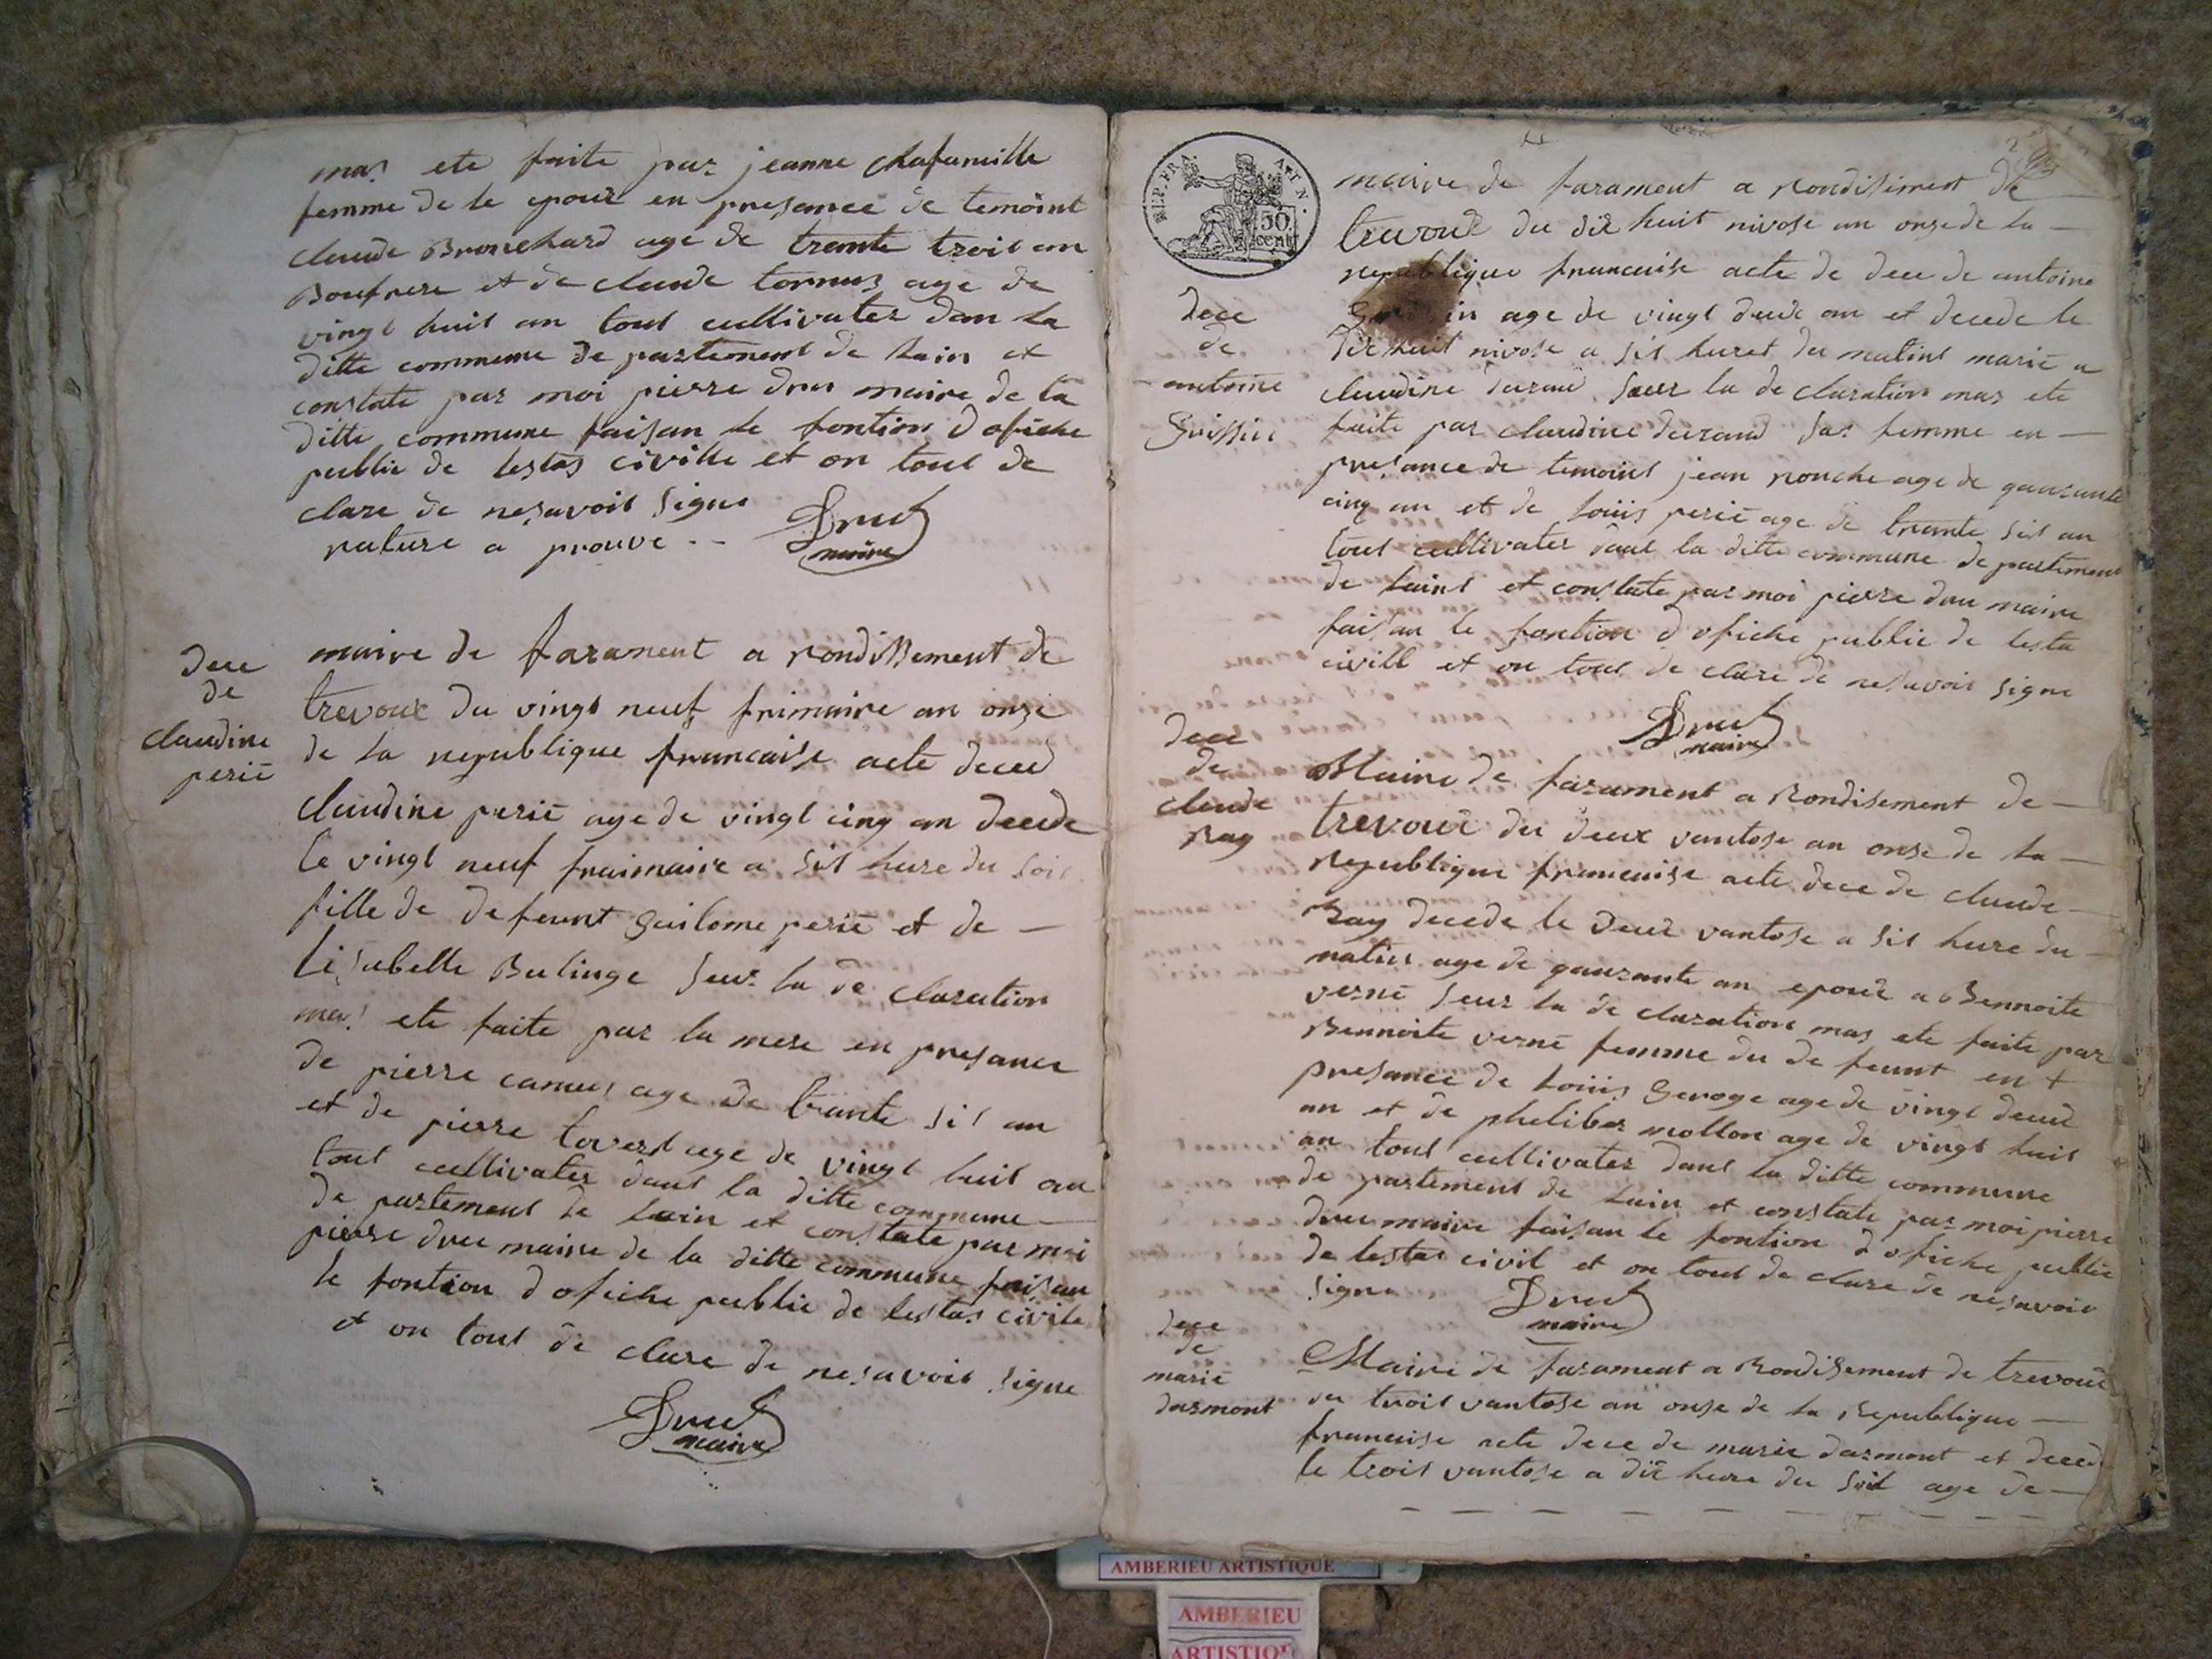 mas ete faite par jeanne chafamille
femme de le epoux en presance de temoint
claude Bronchard age de trante trois an
Boufrere et de claude tornus age de
vingt huit an tout cultivater dan la
ditte commune de partement de lain et
constate par moi pierre dru maire de la
ditte commune faisan le fontion d ofiche
public de lestas civille et on tout de
clare de nesavoir signe
rature a prouve -- Drud
maire
dece
de
claudine
perié
maire de farament a rondissement de
trevoux du vingt neuf frimaire an onze
de la republique francaise acte deced
claudine perié age de vingt cinq an decede
le vingt neuf fraimaire a sis hure du soir
fille de defeunt guilome perié et de —
lisabelle Bulinge seur la de claration
mas ete faite par la mere en presance
de pierre camus age de trante sis an
et de pierre toverd age de vingt huit an
tout cultivater dans la ditte commune —
de partement de lain et constate par moi
pierre dru maire de la ditte commune faisan
le fontion d ofiche public de lestas civile
et on tout de clare de nesavoir signe
Drud
maire
REP. FRA.
50
cent
maire de farament a rondisiment de
trevoux du dix huit nivose an onze de la —
republique francaise acte de dece de antoine
age de vingt deux an et decede le
dix huit nivose a sis hures du matins marié a
claudine durand seur la de claration mas ete
faite par claudine durand sas femme en —
presance de temoins jean ronche age de qaurante
cinq an et de louis perié age de trante sis an
tout cultivater dans la ditte commune de partement
de lains et constate par moi pierre dru maire
faisan le fontion d ofiche public de lesta
civill et on tout de clare de nesavoir signe
Drud
maire
dece
de
antoine
dece
de
claude
Ray
Maire de farament a Rondisement de —
trevoux du deux vantose an onze de la —
Republique francaise acte dece de claude —
Ray decede le deux vantose a sis hure du —
matin age de qaurante an epoux a Bennoite
verné seur la de claration mas ete faite par
Bennoite verné femme du de feunt en +
presance de louis geroge age de vingt deux
an et de pheliber mollon age de vingt huit
an tout cultivater dans la ditte commune
de partement de lain et constate par moi pierre
dru maire faisan le fontion d ofiche public
de lestas civil et on tout de clare de nesavoir
signe Drud
maire
dece
de
marié
darmont
Maire de farament a Rondisement de trevoux
du trois vantose an onze de la Republique —
francaise acte dece de marie darmont et deced
le trois vantose a dix hure du soir age de —
AMBERIEU ARTISTIQUE
AMBERIEU
ARTISTIQ